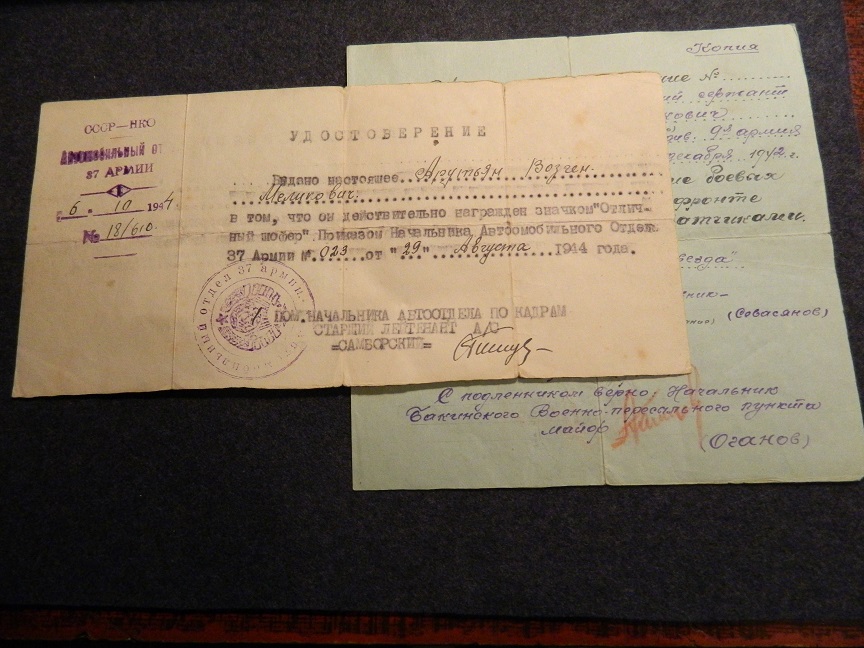 СССР—НКО
Автомобильный от
37 АРМИИ
"6." 10 1944
№ 18/610.
УДОСТОВЕРЕНИЕ
Выдано настоящее Арустьян Возген
Меликович.
в том, что он действительно награжден значком "Отлич-
ный шофер". Приказом Начальника Автфомобильного Отдела
37 Армии № 023 от "29" Августа 1914 года.
ПОМ.НАЧАЛЬНИКА АВТООТДЕЛА ПО КАДРАМ
СТАРШИЙ ЛЕЙТЕНАНТ А/С
=САМБОРСКИЙ=
отдел 37 армии
Копия
ние №
ий сержант
кович
див. 9й армия
декабря 1942 г.
ние боевых
фронте
ватчиками.
везда"
ник-
(Севасянов)
С подленником верно Начальник
Бакинского Военно-пересыльного пункта
майор
(Оганов)